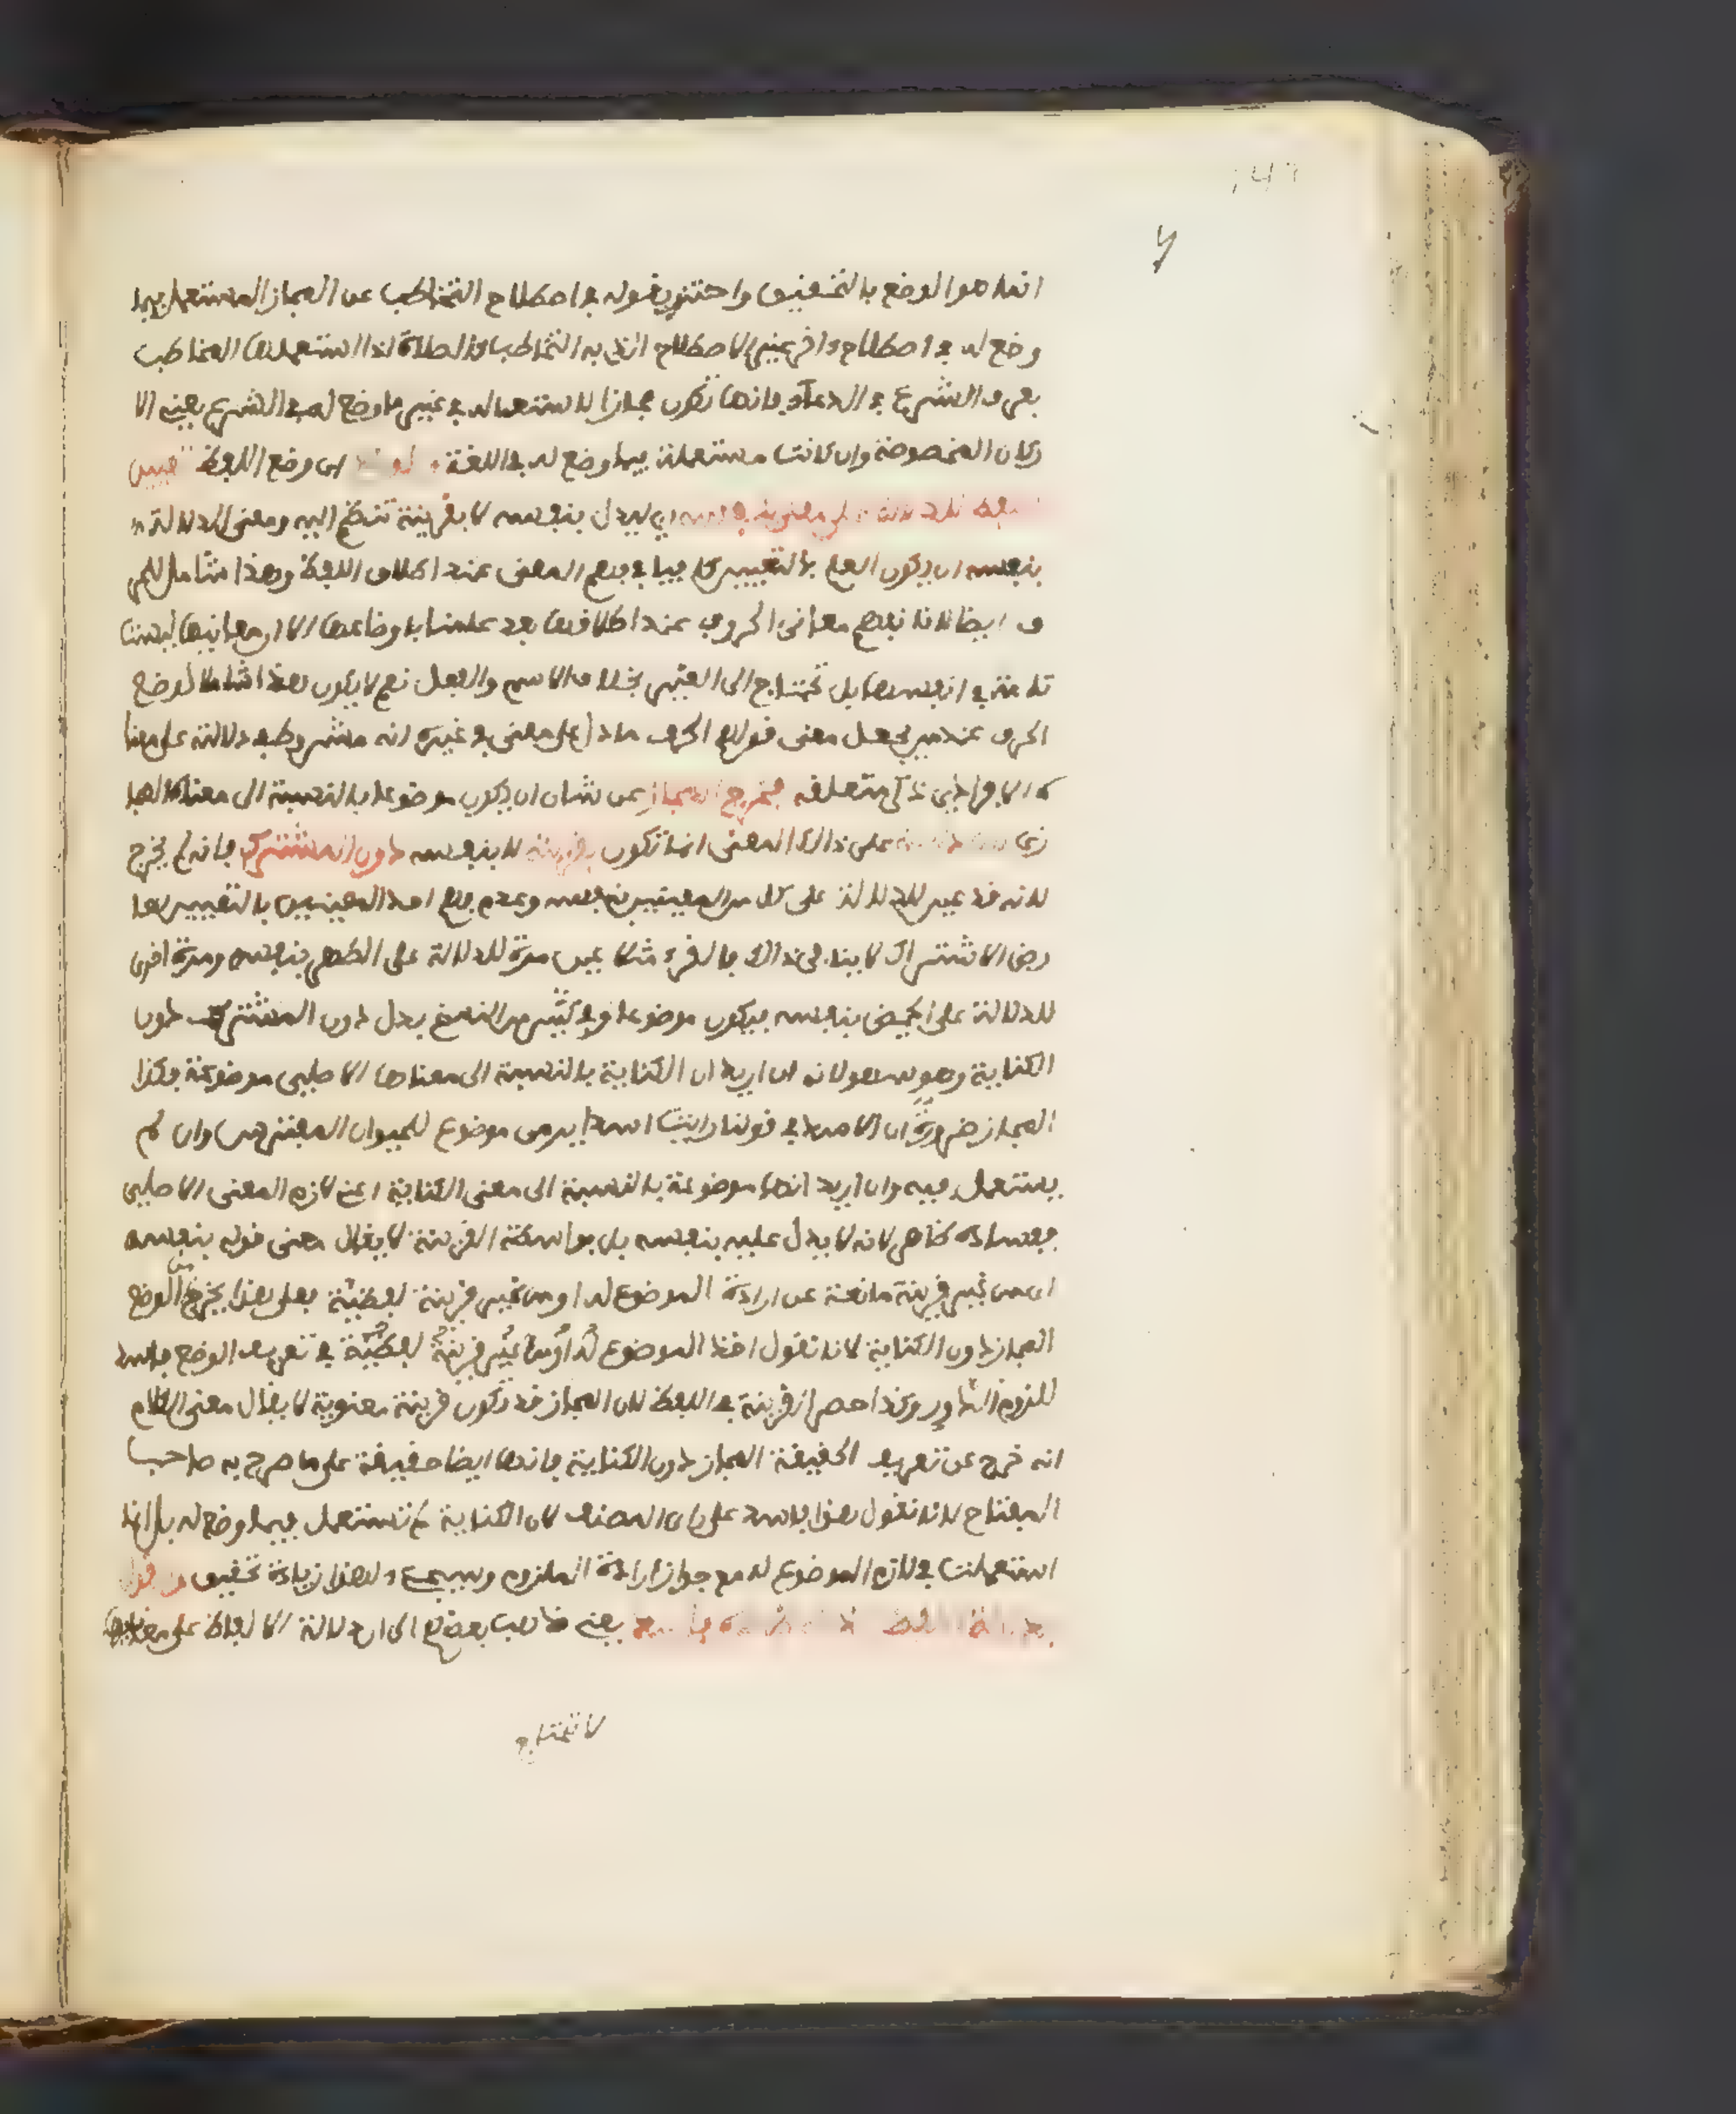 انما هو الوضع بالتحقيق واحترز بقوله في اصطلاح التخاطب عن المجاز المستعمل فيما
وضع له في اصطلاح اخر غير الاصطلاح الذي به التخاطب كالصلاة اذا استعملها المخاطب
بعرف الشرع في الدعاء فانها تكون مجازا لاستعماله في غير ما وضع له في الشرع يعني الا
ركان المخصوصة وان كانت مستعملة فيما وضع له في اللغة اي وضع اللفظ تعيين
اللفظ للدلالة على معنى بنفسه اي ليدل بنفسه لا بقرينة تنضم اليه ومعنى الدلالة
بنفسه ان يكون العلم بالتعيين كافيا في فهم المعنى عند اطلاق اللفظ وهذا شامل للحر
ف ايضا لانا نفهم معاني الحروف عند اطلاقها بعد علمنا باوضاعها الا ان معانيها ليست
تامة في انفسها بل تحتاج الى الغير بخلاف الاسم والفعل نعم لا يكون هذا شاملا لوضع
الحرف عند من يجعل معنى قولهم الحرف ما دل على معنى في غيره انه مشروط في دلالته على معنا
ه الافرادي ذكر متعلقه فخرج المجاز عن شان ان يكون موضوعا بالنسبة الى معناه المجا
زي على ذالك المعنى انما تكون بقرينة لا بنفسه دون المشترك فانه لم يخرج
لانه قد عين للدلالة على كل من المعنيين بنفسه وعدم فهم احد المعنيين بالتعيين لعا
رض الاشتراك لا ينافي ذالك فالقرء مثلا عين مرة للدلالة على الطهر بنفسه ومرة اخرى
للدلالة على الحيض بنفسه فيكون موضوعا وفي كثير من النسخ بدل دون المشترك دون
الكناية وهو سهو لانه ان اريد ان الكناية بالنسبة الى معناها الاصلي موضوعة فكذا
المجاز ضرورة ان الاسد في قولنا رايت اسدا يرمي موضوع للحيوان المفترس وان لم
يستعمل فيه وان اريد انها موضوعة بالنسبة الى معنى الكناية اعني لازم المعنى الاصلي
ففساده ظاهر لانه لا يدل عليه بنفسه بل بواسطة القرينة لا يقال معنى قوله بنفسه
اي من غير قرينة مانعة عن ارادة الموضوع له او من غير قرينة لفظية فعلى هذا يخرج من الوضع
المجاز دون الكناية لانا نقول اخذ الموضوع له او من غير قرينة لفظية في تعريف الوضع فاسد
للزوم الدور وكذا حصر القرينة في اللفظ لان المجاز قد تكون قرينة معنوية لا يقال معنى الكلام
انه خرج عن تعريف الحقيقة المجاز دون الكناية فانها ايضا حقيقة على ما صرح به صاحب
المفتاح لانا نقول هذا فاسد على راي المصنف لان الكناية لم تستعمل فيما وضع له بل انما
استعملت في لازم الموضوع له مع جواز ارادة الملزوم وسيجيء لهذا زيادة تحقيق
يعني ذهب بعضهم الى ان دلالة الالفاظ على معانيها
لا تحتاج